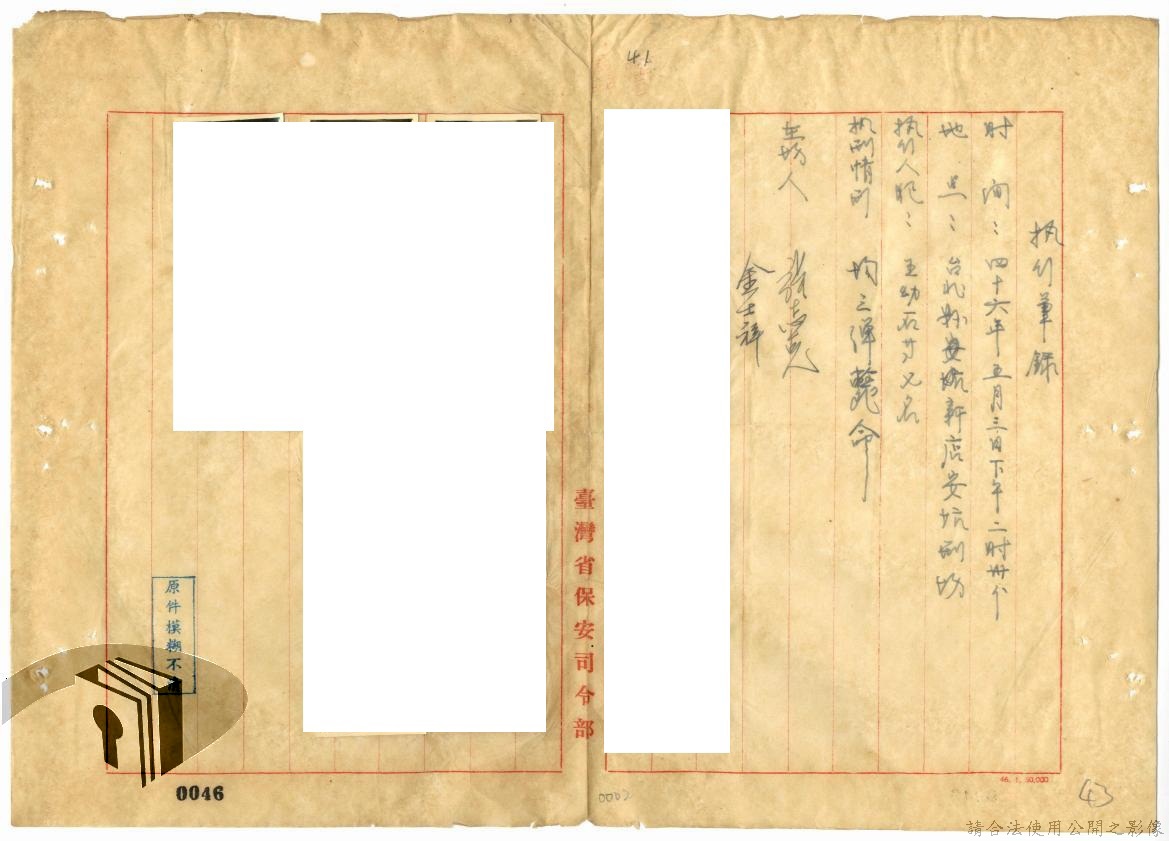 41
执行筆録
时间：四十六年五月三日下午二时卅分
地点：台北縣安坑新店安坑刑場
执行人犯：王幼石等 名
执刑情形 均三弹斃命
在場人
金士祥
臺灣省保安司令部
原件模糊不清
0046
0002
46. 1. 50,000
43
請合法使用公開之影像